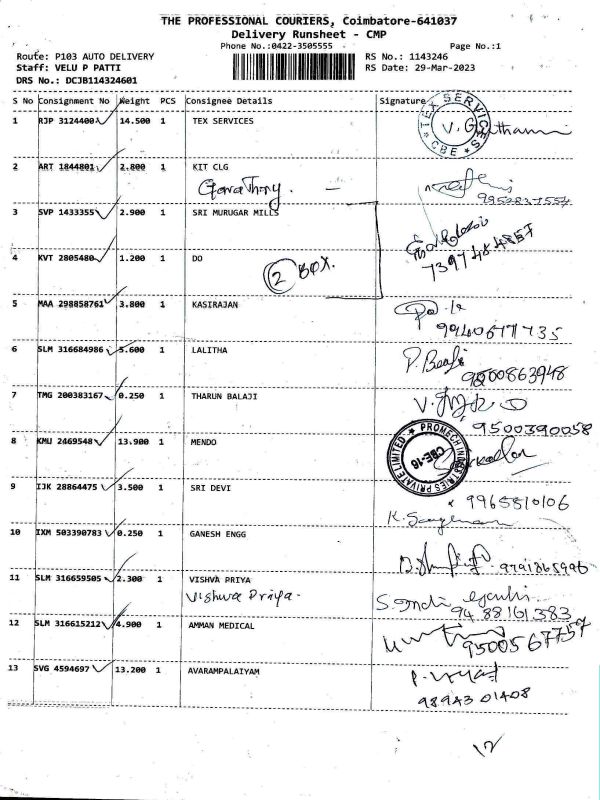 THE PROFESSIONAL COURIERS, Coimbatore-641037
Delivery Runsheet - CMP
Phone No.:0422-3505555 Page No.:1
Route: P103 AUTO DELIVERY RS No.: 1143246
Staff: VELU P PATTI RS Date: 29-Mar-2023
DRS No.: DCJB114324601
S No Consignment No Weight PCS Consignee Details Signature
1 RJP 3124400 14.500 1 TEX SERVICES
TEX SERVICES CBE
2 ART 1844801 2.800 1 KIT CLG
3 SVP 1433355 2.900 1 SRI MURUGAR MILLS
7397484857
4 KVT 2805480 1.200 1 DO
2 BOX.
5 MAA 298858761 3.800 1 KASIRAJAN
6 SLM 316684986 5.600 1 LALITHA
9500863948
7 TMG 200383167 0.250 1 THARUN BALAJI
9500390058
8 KMU 2469548 13.900 1 MENDO
PROMECH INDUSTRIES PRIVATE LIMITED CBE-16
9 IJK 28864475 3.500 1 SRI DEVI
9965810106
10 IXM 503390783 0.250 1 GANESH ENGG
9791865996
11 SLM 316659505 2.300 1 VISHVA PRIYA
Vishva Priya.
9488161383
12 SLM 316615212 4.900 1 AMMAN MEDICAL
9500567757
13 SVG 4594697 13.200 1 AVARAMPALAIYAM
98943 01408
12